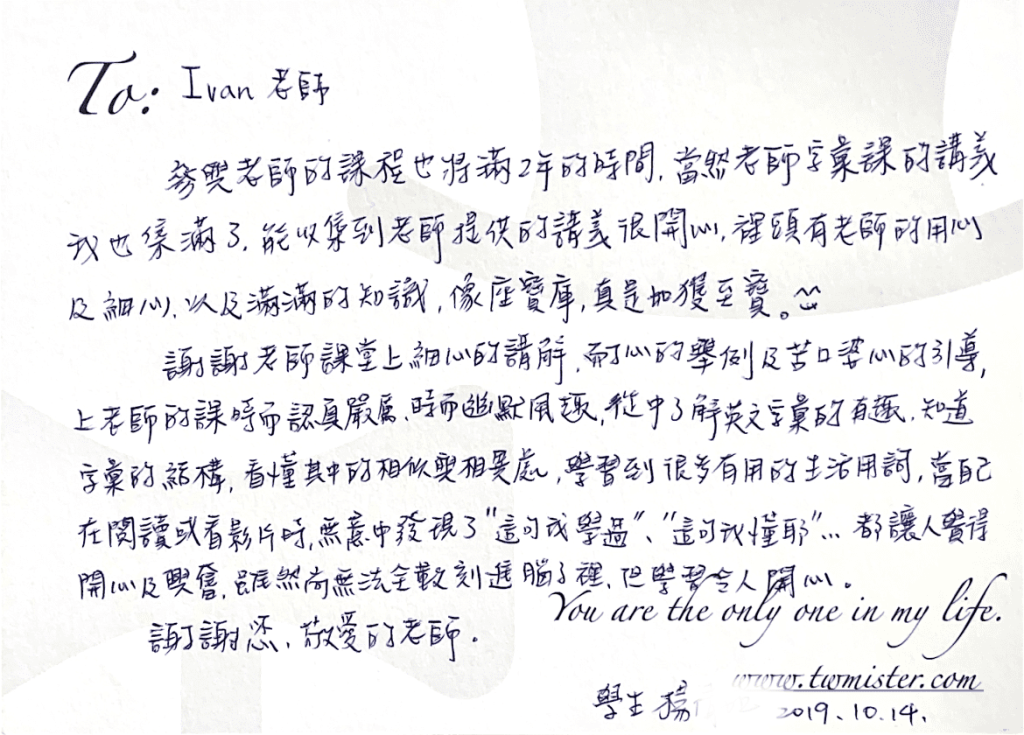 To: Ivan 老師
參與老師的課程也將滿2年的時間,當然老師字彙課的講義
我也集滿了,能收集到老師提供的講義很開心,裡頭有老師的用心
及細心,以及滿滿的知識,像座寶庫,真是如獲至寶。
謝謝老師課堂上細心的講解,耐心的舉例及苦口婆心的引導,
上老師的課時而認真嚴厲、時而幽默風趣,從中了解英文字彙的有趣,知道
字彙的結構,看懂其中的相似與相異處,學習到很多有用的生活用詞,當自己
在閱讀或看影片時,無意中發現了"這句我學過"、"這句我懂耶"... 都讓人覺得
開心及興奮,雖然尚無法全數刻進腦子裡,但學習令人開心。
You are the only one in my life.
謝謝您,敬愛的老師.
www.twmister.com
學生 楊
2019.10.14.